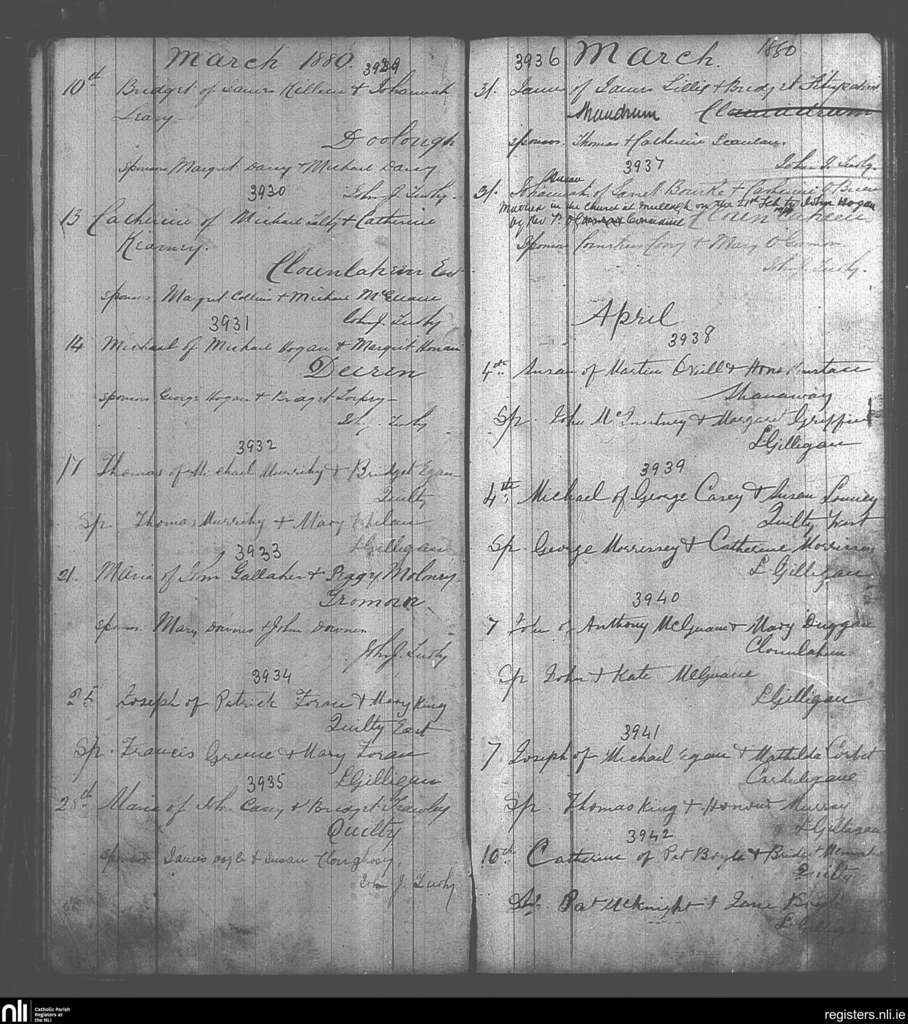 March 1880.
3929
10th Bridget of James Killeen & Johannah
Leary
Doolough
sponsors Margret Darcy & Michael Darcy
3930 John J. Tushy.
13 Catherine of Michael & Catherine
Kearney.
Clounlahean East
sponsors Margret Collins & Michael McGuane
John J. Tushy
3931
14 Michael of Michael Hogan & Margret Honan
Deeren
sponsors George Hogan & Bridget
John J. Tushy
3932
17 Thomas of Michael Murrihy & Bridget Egan
Quilty
Sp. Thomas Murrihy & Mary Whelan
L Gilligan
3933
21. Maria of Tom Gallaher & Peggy Moloney
Tromoin
sponsors Mary Downes & John Downes
John J. Tushy
3934
25 Joseph of Patrick Foran & Mary King
Quilty East
Sp. Francis Greene & Mary Foran
3935 L Gilligan
28th Maria of John Casey & Bridget
Quilty
sponsors James Boyle & Susan Cloughessy,
John J. Tushy
3936 March. 1880
31. James of James Lillis & Bridget Fitzpatrick
Shandrum
sponsors Thomas & Catherine Scanlan.
3937 John J. Tushy.
31. Johannah of Bourke & Catherine
Married in the church at Mullagh on the 21st Feb to John Hogan
by Rev P.
Sponsors Cornelius & Mary O'Gorman
John J. Tushy.
April
3938
4th Susan of Martin O'Neill & Hanora Eustace
Shanaway
Sp. John McInerney & Margaret Griffin
L Gilligan
3939
4th Michael of George Casey & Susan
Quilty West
Sp. George Morrissey & Catherine Morrissey
L Gilligan
3940
7 John of Anthony McGuane & Mary Duggan
Clounlahean
Sp John & Kate McGuane
L Gilligan
3941
7 Joseph of Michael Egan & Mathilda Corbet
Carhiligane
Sp. Thomas King & Honour Murray
L Gilligan
3942
10th Catherine of Pat Boyle & Bridget
Quilty
Sp. Pat McKnight & Jane Boyle
L Gilligan
nli
Catholic Parish
Registers at
the NLI
registers.nli.ie